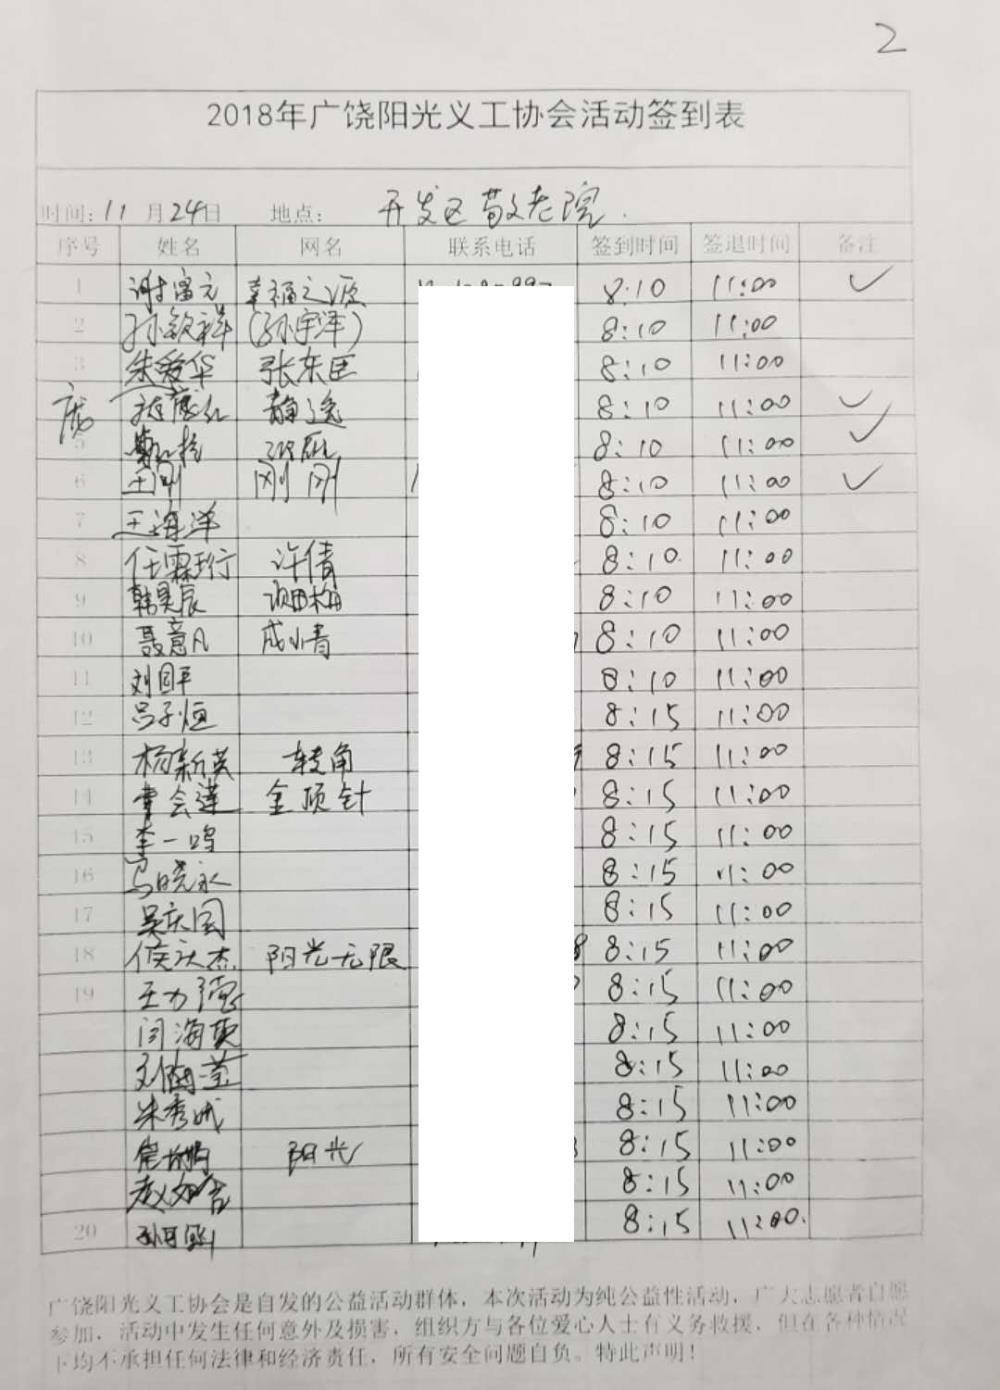 2
2018年广饶阳光义工协会活动签到表
时间: 11 月 24日 地点: 开发区敬老院.
序号 姓名 网名 联系电话 签到时间 签退时间 备注
1 谢富元 幸福之源 8:10 11:00 ✓
2 孙钦祥 (孙宇泽) 8:10 11:00
3 朱爱华 张东臣 8:10 11:00
庞 静逸 8:10 11:00 ✓
5 8:10 11:00 ✓
6 王刚 刚刚 8:10 11:00 ✓
7 王海洋 8:10 11:00
8 任霖珩 许倩 8:10 11:00
9 韩昊辰 8:10 11:00
10 聂意凡 成小青 8:10 11:00
11 刘国平 8:10 11:00
12 吕子恒 8:15 11:00
13 杨新英 转角 8:15 11:00
14 曹会莲 金顶针 8:15 11:00
15 李一鸣 8:15 11:00
16 马晓永 8:15 11:00
17 吴庆国 8:15 11:00
18 侯庆杰 阳光无限 8:15 11:00
19 王力德 8:15 11:00
闫海英 8:15 11:00
刘 莹 8:15 11:00
朱秀斌 8:15 11:00
阳光 8:15 11:00
8:15 11:00
20 8:15 11:00.
广饶阳光义工协会是自发的公益活动群体，本次活动为纯公益性活动，广大志愿者自愿
参加，活动中发生任何意外及损害，组织方与各位爱心人士有义务救援，但在各种情况
下均不承担任何法律和经济责任，所有安全问题自负。特此声明！